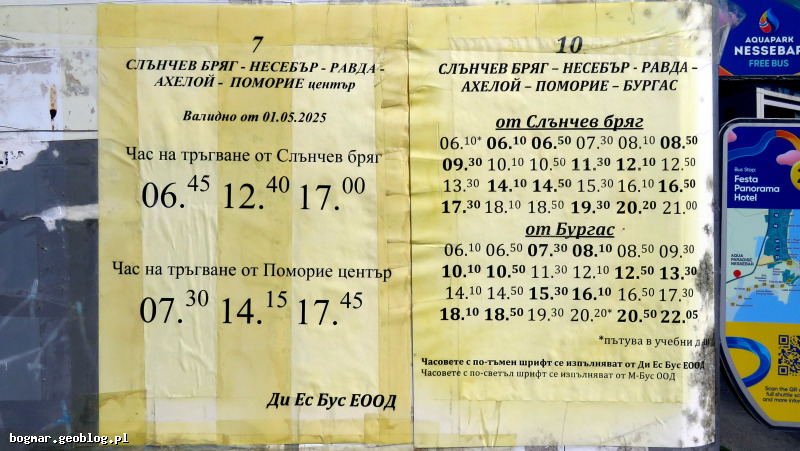 7
СЛЪНЧЕВ БРЯГ - НЕСЕБЪР - РАВДА -
АХЕЛОЙ - ПОМОРИЕ център
Валидно от 01.05.2025
Час на тръгване от Слънчев бряг
06.45 12.40 17.00
Час на тръгване от Поморие център
07.30 14.15 17.45
Ди Ес Бус ЕООД
10
СЛЪНЧЕВ БРЯГ – НЕСЕБЪР - РАВДА –
АХЕЛОЙ – ПОМОРИЕ – БУРГАС
от Слънчев бряг
06.10* 06.10 06.50 07.30 08.10 08.50
09.30 10.10 10.50 11.30 12.10 12.50
13.30 14.10 14.50 15.30 16.10 16.50
17.30 18.10 18.50 19.30 20.20 21.00
от Бургас
06.10 06.50 07.30 08.10 08.50 09.30
10.10 10.50 11.30 12.10 12.50 13.30
14.10 14.50 15.30 16.10 16.50 17.30
18.10 18.50 19.30 20.20* 20.50 22.05
*пътува в учебни
Часовете с по-тъмен шрифт се изпълняват от Ди Ес Бус ЕООД
Часовете с по-светъл шрифт се изпълняват от М-Бус ООД
AQUAPARK
NESSEBAR
FREE BUS
Bus Stop:
Festa
Panorama
Hotel
AQUA
PARADISE
NESSEBAR
Scan the QR
full shuttle
bogmar.geoblog.pl